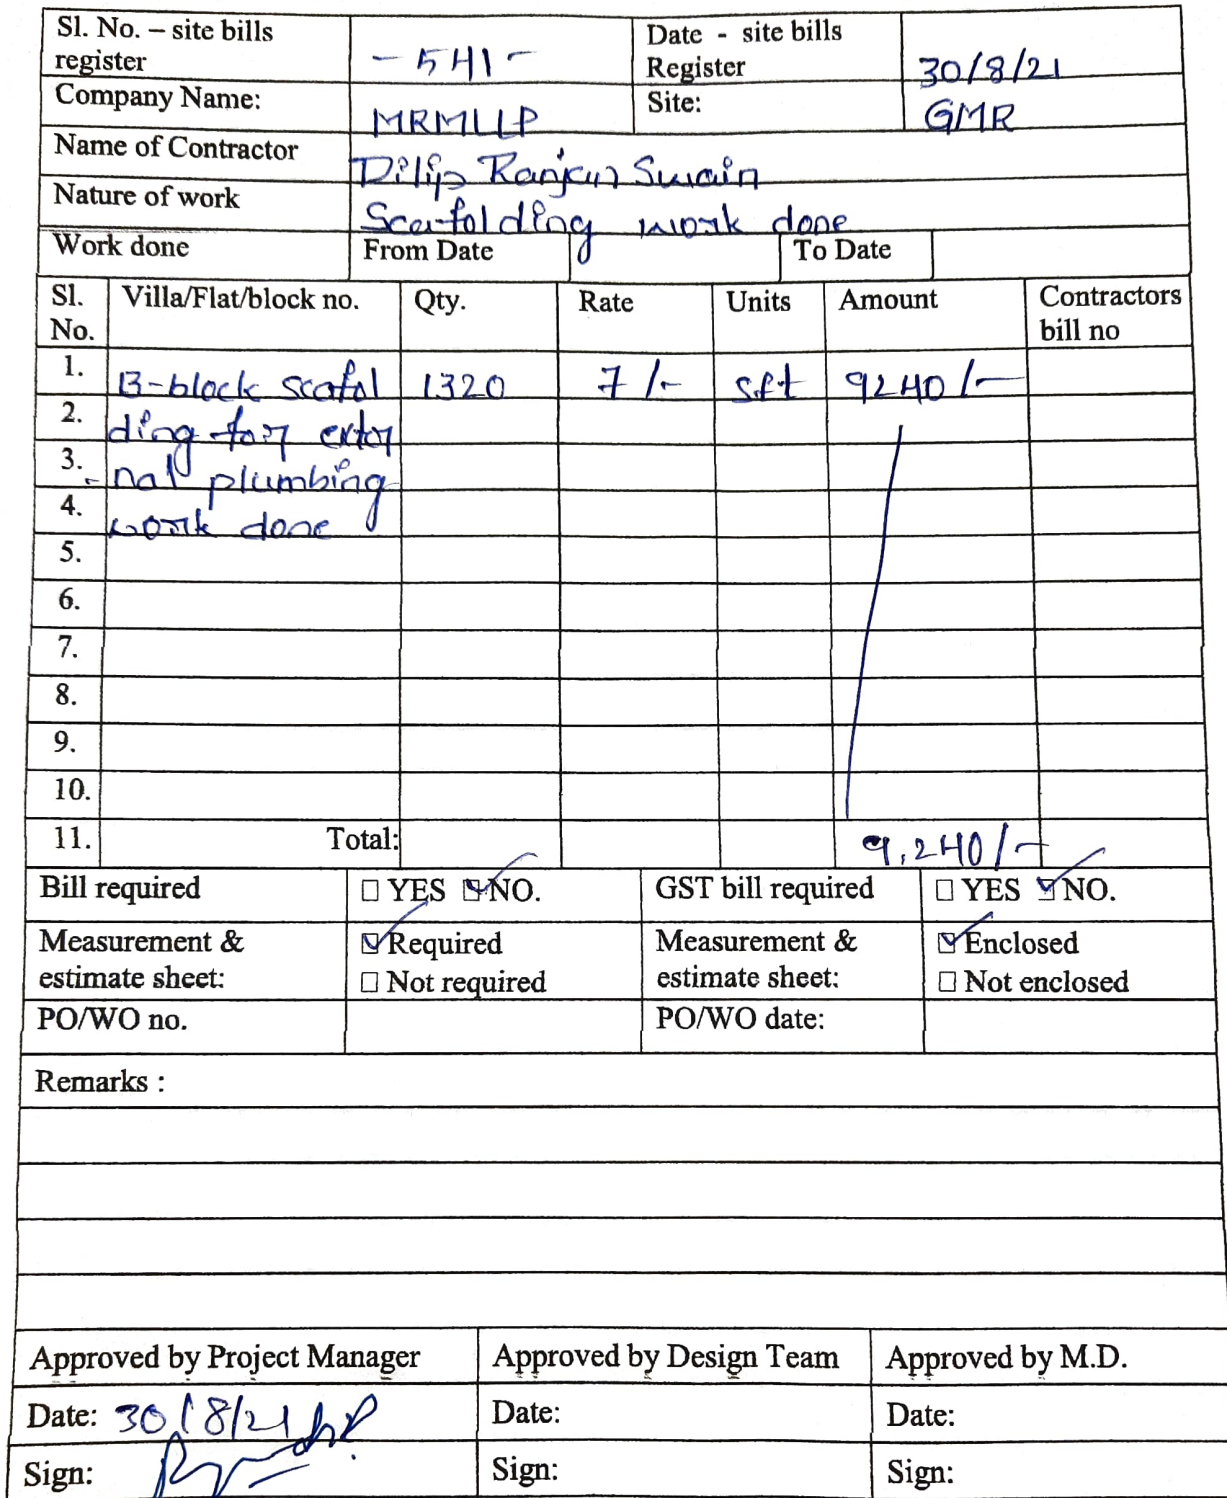 Sl. No. – site bills register - 541 - Date - site bills Register 30/8/21
Company Name: MRMLLP Site: GMR
Name of Contractor Dilip Ranjan Swain
Nature of work Scaffolding work done
Work done From Date To Date
Sl. No. Villa/Flat/block no. Qty. Rate Units Amount Contractors bill no
1. B-block scafol 1320 7/- sft 9240/-
2. ding for exter
3. -nal plumbing
4. work done
5.
6.
7.
8.
9.
10.
11. Total: 9,240/-
Bill required ☐ YES ☑ NO. GST bill required ☐ YES ☑ NO.
Measurement & estimate sheet: ☑ Required Measurement & estimate sheet: ☑ Enclosed
☐ Not required ☐ Not enclosed
PO/WO no. PO/WO date:
Remarks :
Approved by Project Manager Approved by Design Team Approved by M.D.
Date: 30/8/21 Date: Date:
Sign: Sign: Sign: